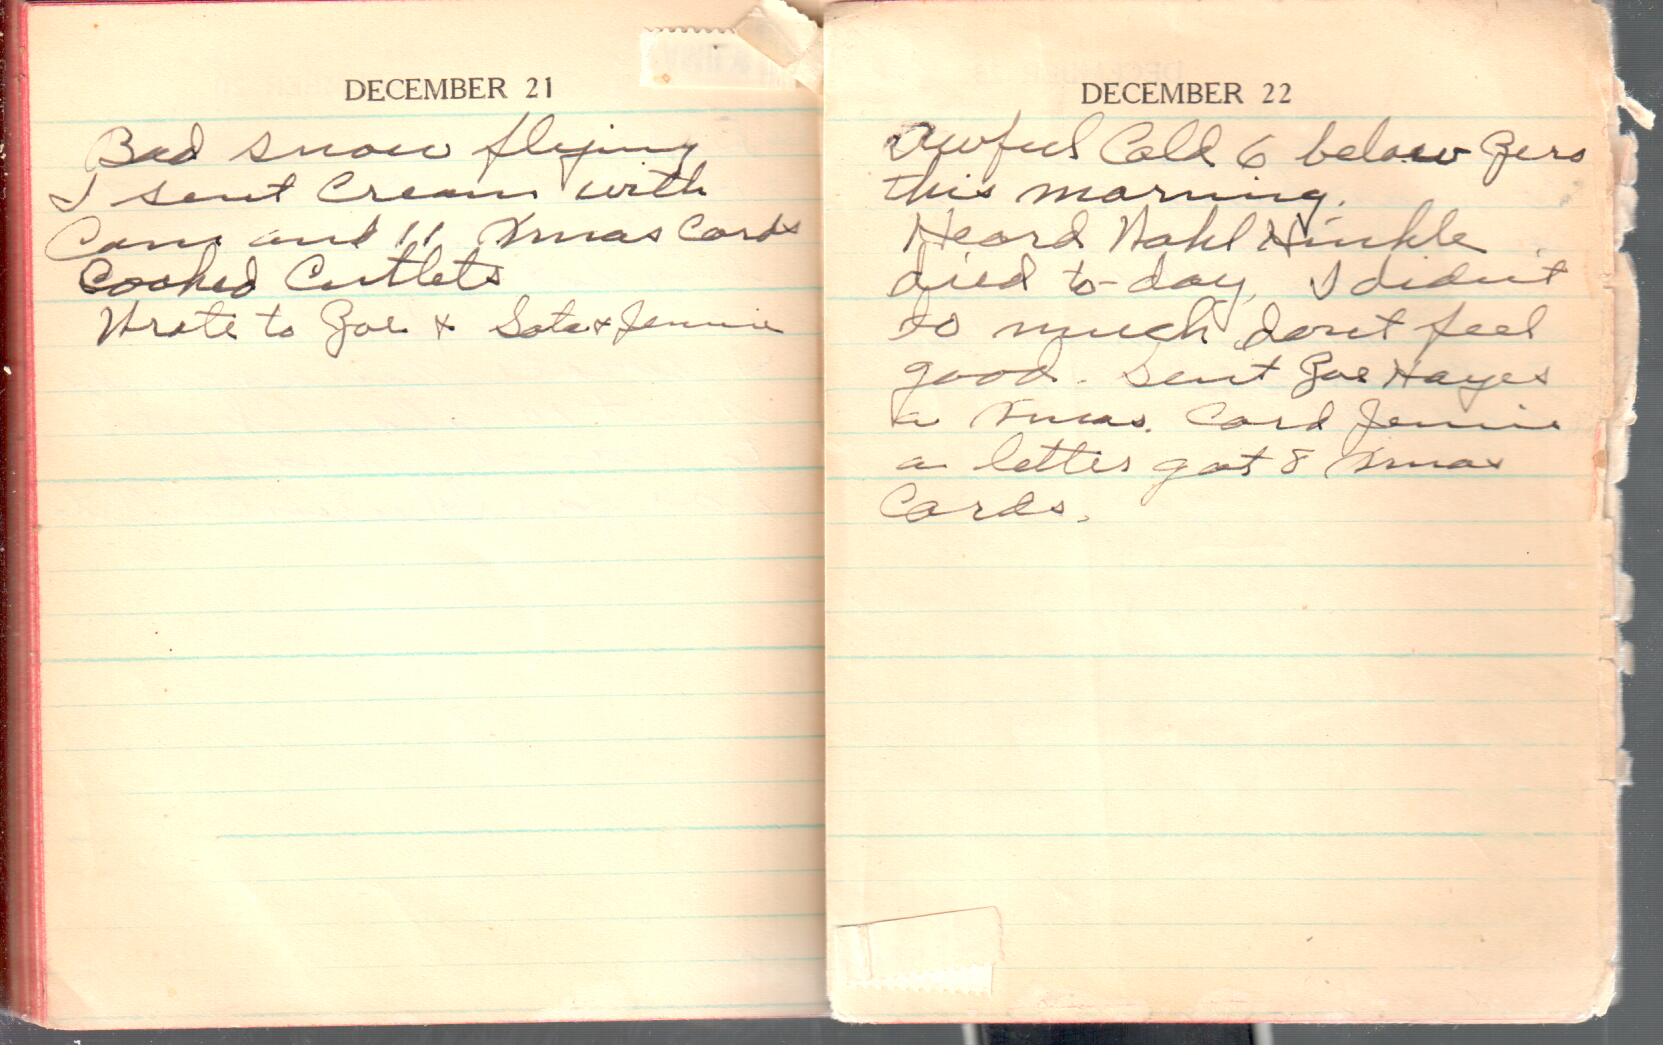 DECEMBER 21
Bad snow flying
I sent Cream with
Cam and 11 Xmas Cards
Cooked Cutlets
Wrote to Zoe & & Jennie
DECEMBER 22
Awful Cold 6 below Zero
this morning.
Heard Hinkle
died to-day, I didn't
do much dont feel
good. Sent Zoe Hayes
a Xmas. Card Jennie
a letter got 8 Xmas
Cards.